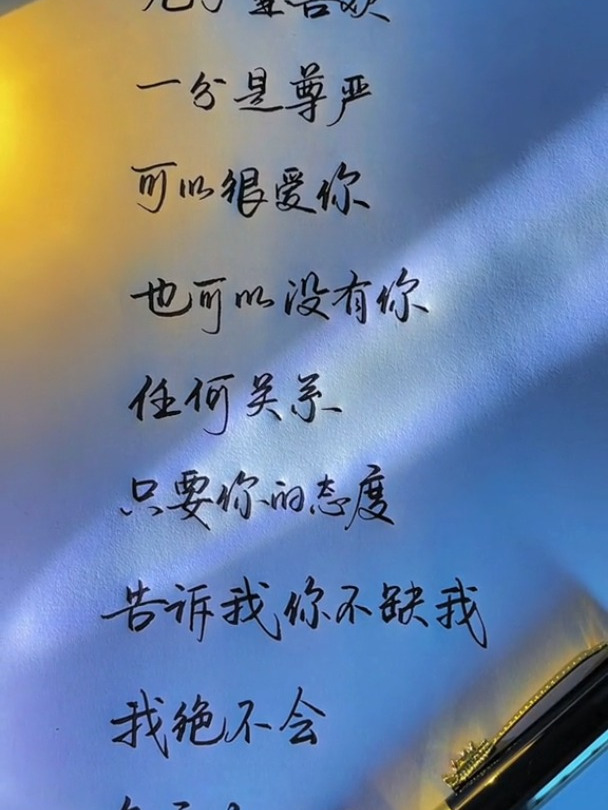 一分是尊严
可以很爱你
也可以没有你
任何关系
只要你的态度
告诉我你不缺我
我绝不会